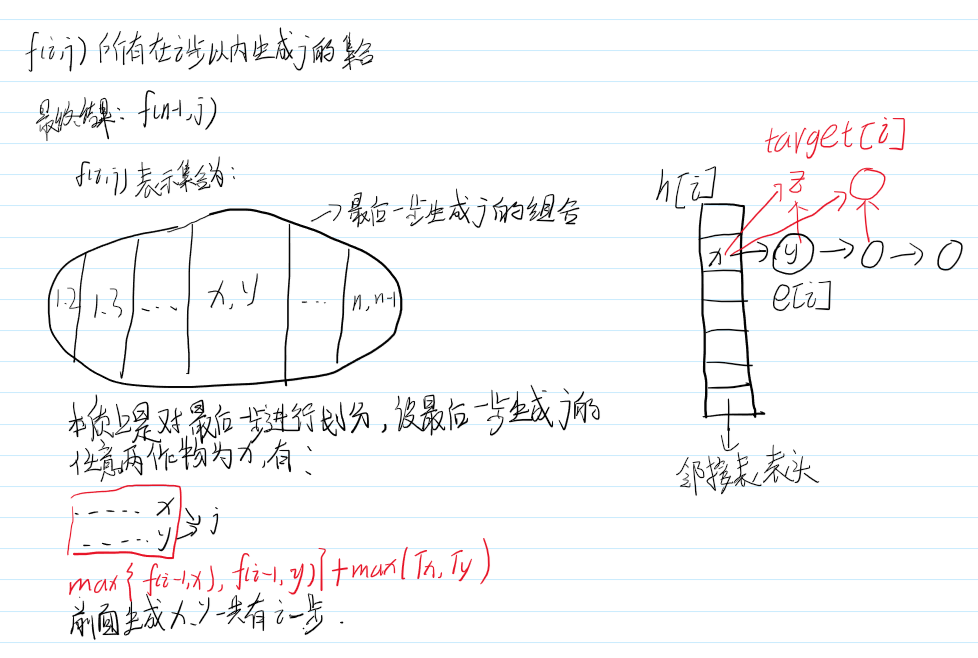 f(i,j) 所有在i步以内生成j的集合
最终结果: f(n-1,j)
f(i,j) 表示集合为:
→最后一步生成j的组合
1.2 1.3 ... x,y ... n,n-1
本质上是对最后一步进行划分,设最后一步生成j的
任意两作物为x,有:
...... x
...... y → j
max{f(i-1,x), f(i-1,y)}+max(Tx,Ty)
前面生成x、y一共有i-步.
target[i]
h[i]
z
x y
e[i]
邻接表表头